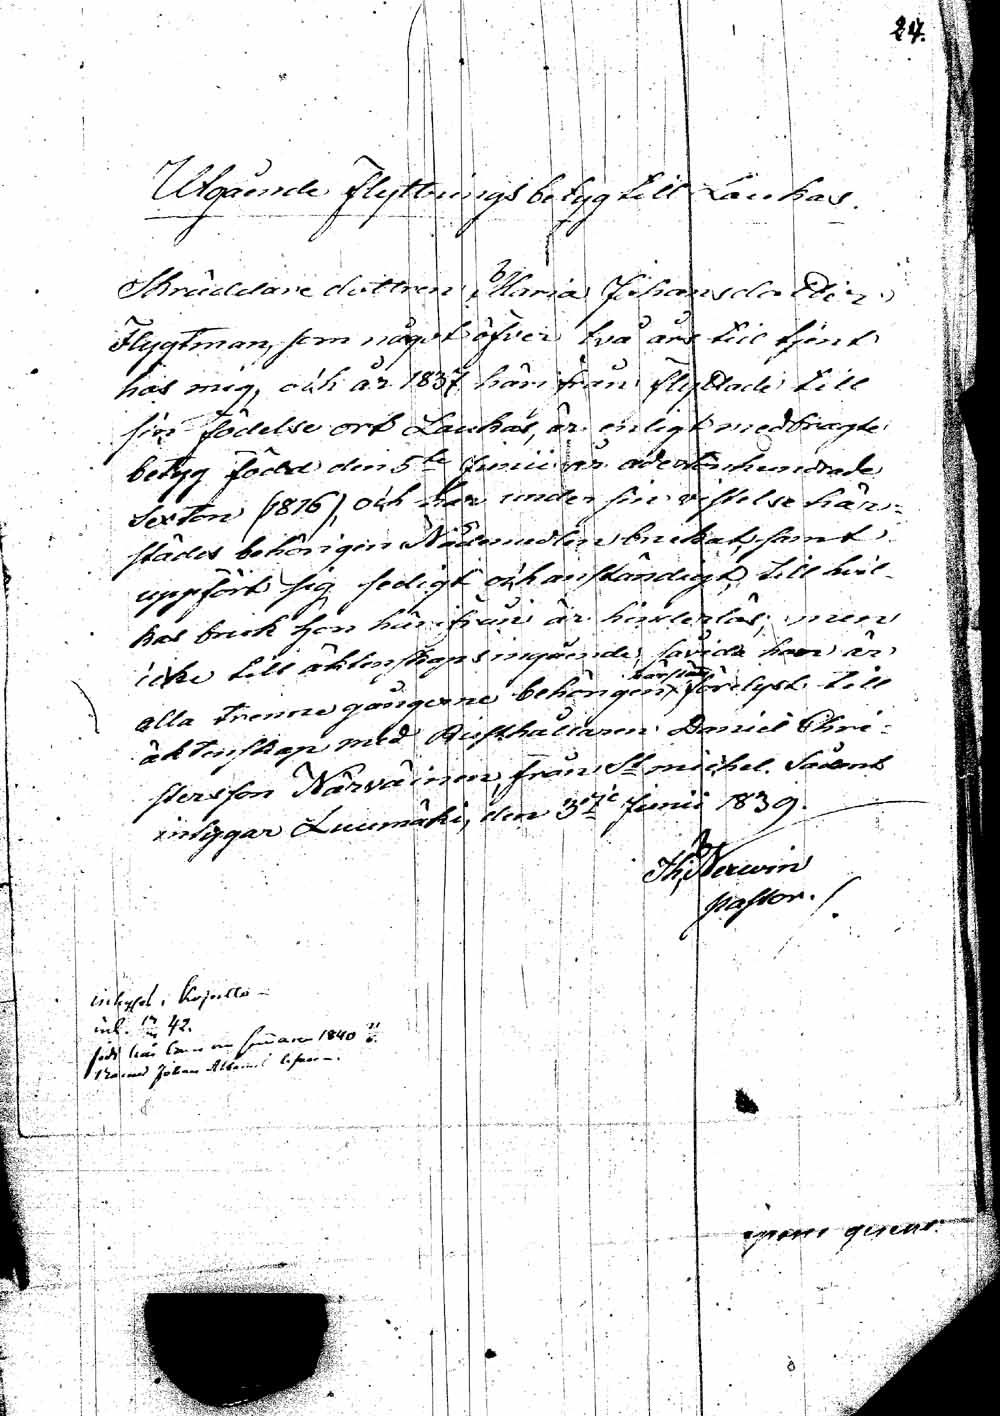 24.
Utgående flyttningsbetyg till Laukas.
Skräddare dottren Maria Johansdotter
Flygtman, som något öfver två års tid tjent
hos mig, och år 1837 härifrån flyttade till
sin födelse ort Laukas, är enligt medbragte
betyg född den 5te Junii år adertonhundrade
Sexton (1816), och har under sin vistelse här-
städes behörigen Nådemedlen brukat, samt
uppfört sig sedigt och anständigt, till hvil-
kas bruk hon härifrån är hinderlös; men
icke till äktenskaps ingående, såvida hon är
alla trenne gångerne behörigen härstädes förelyst till
äktenskap med Rusthållaren Daniel Chri-
stersson Närväinen, från St michel. Sådant
intygar Luumäki, den 3 Junii 1839.
Th. Nerwin
pastor.
ink. 42.
född här 1840
Johan